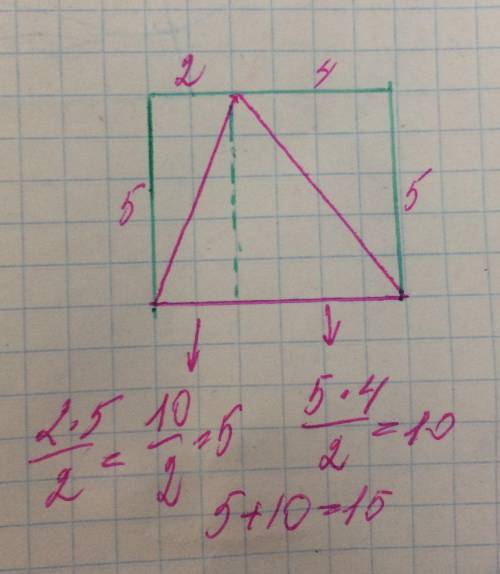 2 4
5 5
2·5/2 = 10/2 = 5 5·4/2 = 10
5+10=15